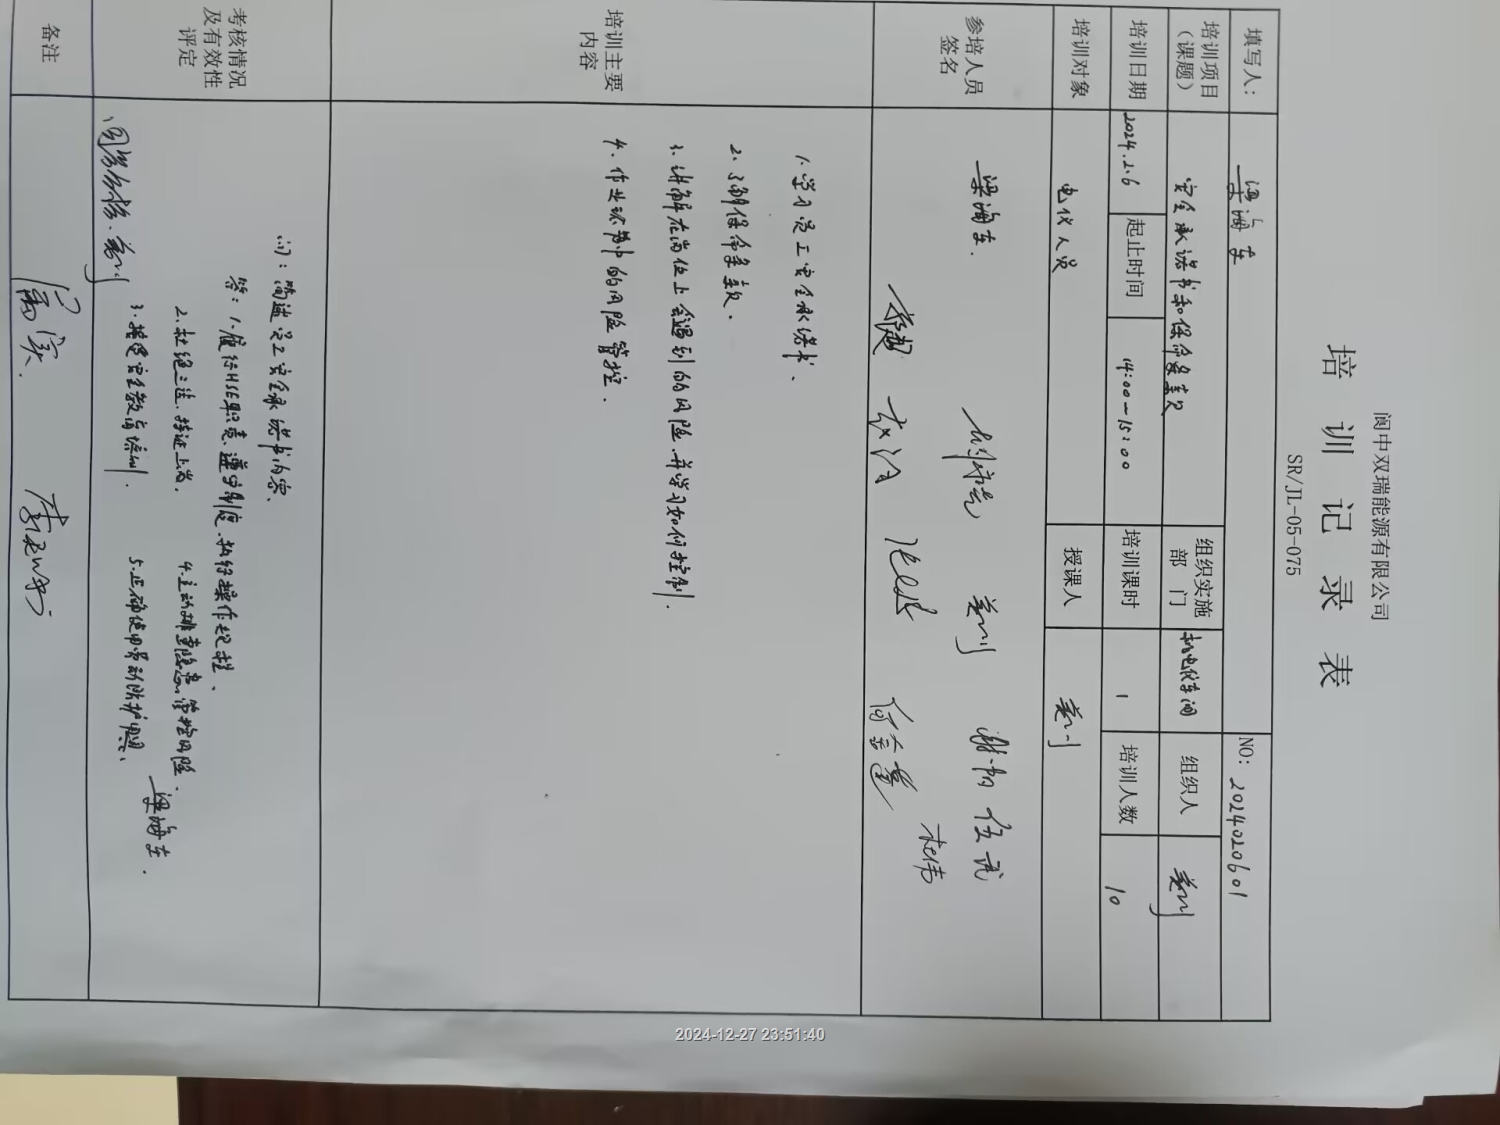 阆中双瑞能源有限公司
培训记录表
SR/JL-05-075
填写人： 梁海东 NO: 2024020601
培训项目（课题） 安全承诺书和保命条款 组织实施部门 机电仪车间 组织人 姜川
培训日期 2024.2.6 起止时间 14:00-15:00 培训课时 1 培训人数 10
培训对象 电仪人员 授课人 姜川
参培人员签名 梁海东 姜川 谢韬 伍武
杜伟
培训主要内容
1. 学习员工安全承诺书、
2. 了解保命条款。
3. 讲解在岗位上会遇到的风险，并学习如何控制。
4. 作业环节中的风险管控。
考核情况及有效性评定
问：简述员工安全承诺书内容
答：1. 履行HSE职责、遵守制度、执行操作规程、
2. 杜绝三违、持证上岗. 4. 主动排查隐患，管控风险.
3. 接受安全教育培训. 5. 正确使用劳动防护用品、
梁海东.
姜川
备注
2024-12-27 23:51:40